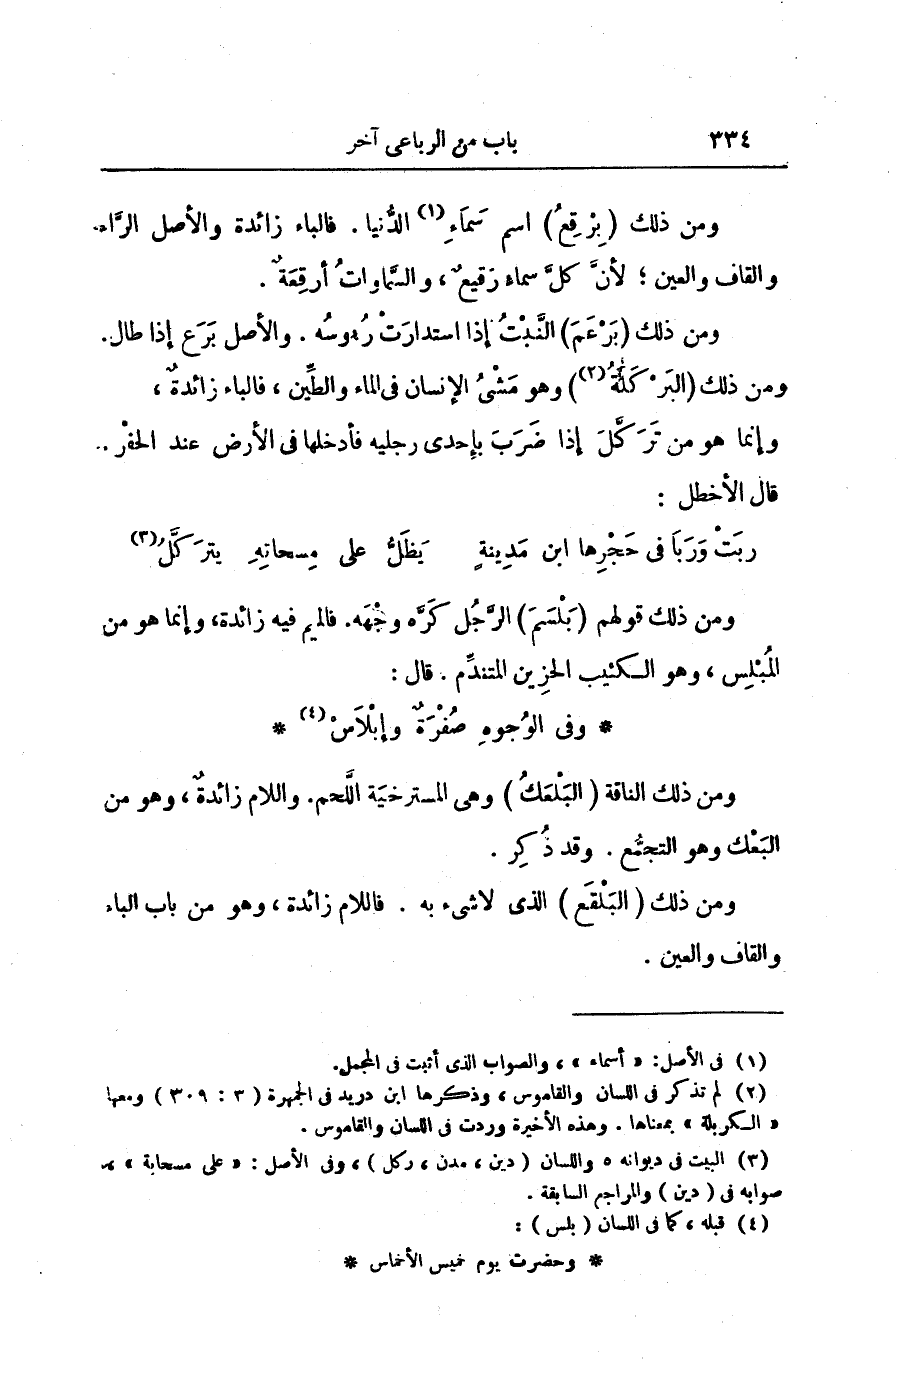 ٣٣٤ باب من الرباعى آخر
ومن ذلك (بِرْقِعُ) اسم سَمَاءِ(١) الدُّنيا . فالباء زائدة والأصل الرَّاء
والقاف والعين ؛ لأنَّ كلَّ سماء رَقيعٌ ، والسَّماواتُ أرقِعَةٌ .
ومن ذلك (بَرْعَمَ) النَّبْتُ إذا استدارَتْ رُءوسُه . والأصل بَرَع إذا طال.
ومن ذلك (البَرْكَلَةُ(٢)) وهو مَشْىُ الإنسان فى الماء والطِّين ، فالباء زائدةٌ ،
وإنما هو من تَرَكَّلَ إذا ضَرَبَ بإحدى رجليه فأدخلها فى الأرض عند الحفْر ..
قال الأخطل :
ربَتْ وَرَبَا فى حَجْرِها ابن مَدِينةٍ يَظَلُّ على مِسحاتِهِ يترَكَّلُ(٣)
ومن ذلك قولهم (بَلْسَمَ) الرَّجُل كَرَّه وجْهَه. فالميم فيه زائدة، وإنما هو من
المُبْلِس ، وهو الكئيب الحزِين المتندِّم . قال :
* وفى الوُجوهِ صُفْرَةٌ وإبْلَاسْ(٤) *
ومن ذلك الناقة (البَلْعَكُ) وهى المسترخيَة اللَّحم. واللام زائدةٌ ، وهو من
البَعْك وهو التجمُّع . وقد ذُكِر .
ومن ذلك (البَلْقَع) الذى لاشىء به . فاللام زائدة ، وهو من باب الباء
والقاف والعين .
(١) فى الأصل: « أسماء » ، والصواب الذى أثبت فى المجمل.
(٢) لم تذكر فى اللسان والقاموس ، وذكرها ابن دريد فى الجمهرة (٣ : ٣٠٩) ومعها
« الكربلة » بمعناها . وهذه الأخيرة وردت فى اللسان والقاموس .
(٣) البيت فى ديوانه ٥ واللسان (دين ، مدن ، ركل) ، وفى الأصل : « على مسحابة » ،
صوابه فى (دين) والمراجع السابقة .
(٤) قبله ، كما فى اللسان (بلس) :
* وحضرت يوم خميس الأخماس *